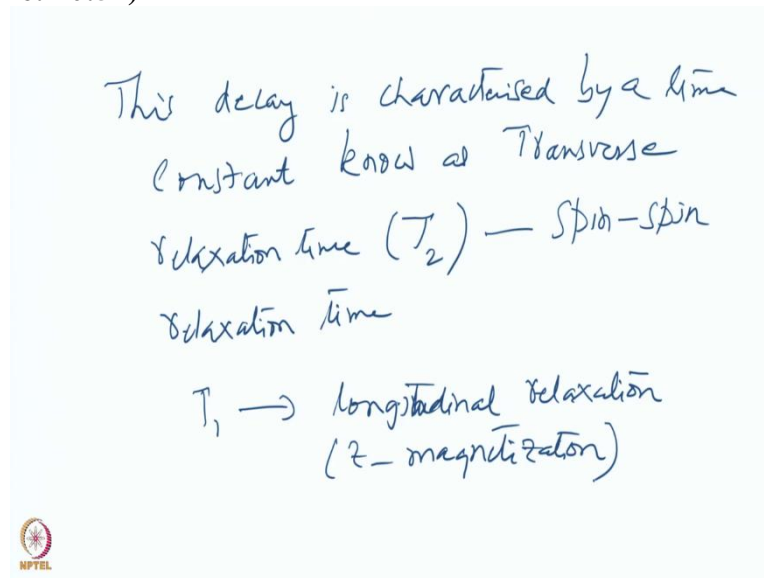 This delay is characterised by a time
Constant know as Transverse
relaxation time (T₂) — Spin-spin
relaxation time
T₁ → longitudinal relaxation
(Z- magnetization)
NPTEL